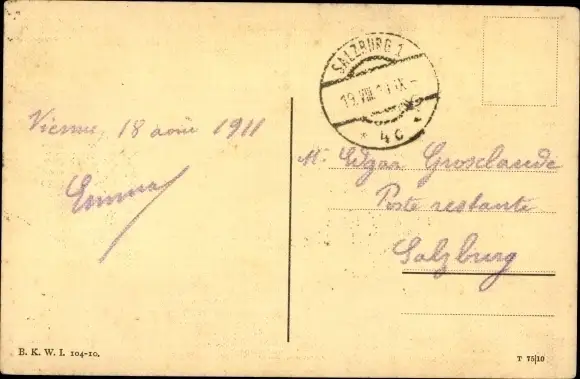 SALZBURG 1
19.VIII.11.IX-
* 4c *
Vienne, 18 août 1911
Emma
Mr. Edgar Grosclaude
Poste restante
Salzburg
B. K. W. I. 104-10.
T 75|10